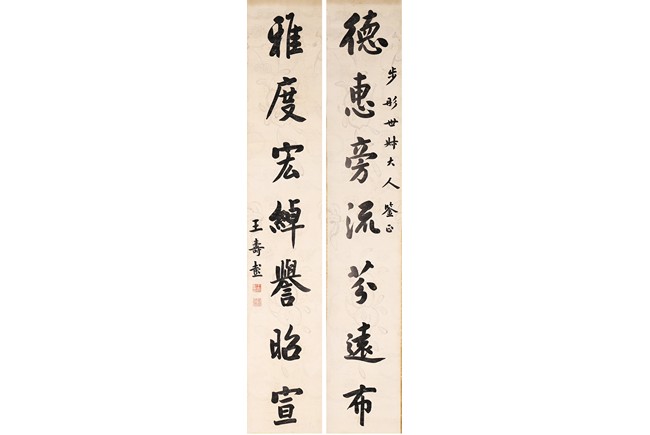 德惠旁流芬遠布
步彤世姊大人鉴正
雅度宏綽譽昭宣
王壽彭